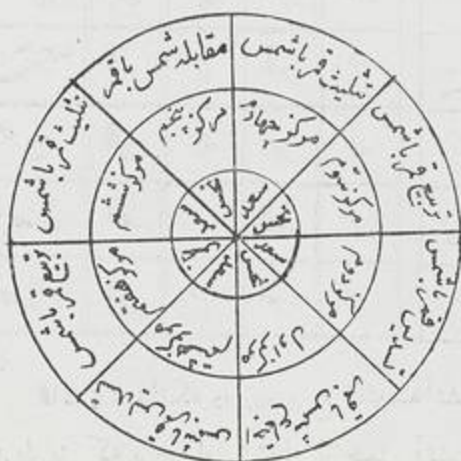 مقابله شمس باقمر
تثلیث قمر باشمس
تربیع قمر باشمس
تسدیس قمر باشمس
اجتماع شمس باقمر
تسدیس قمر باشمس
تربیع قمر باشمس
تثلیث قمر باشمس
مرکز پنجم
مرکز چهارم
مرکز سوم
مرکز دوم
مرکز اول
مرکز هشتم
مرکز هفتم
مرکز ششم
نحس
سعد
نحس
سعد
نحس
سعد
نحس
سعد